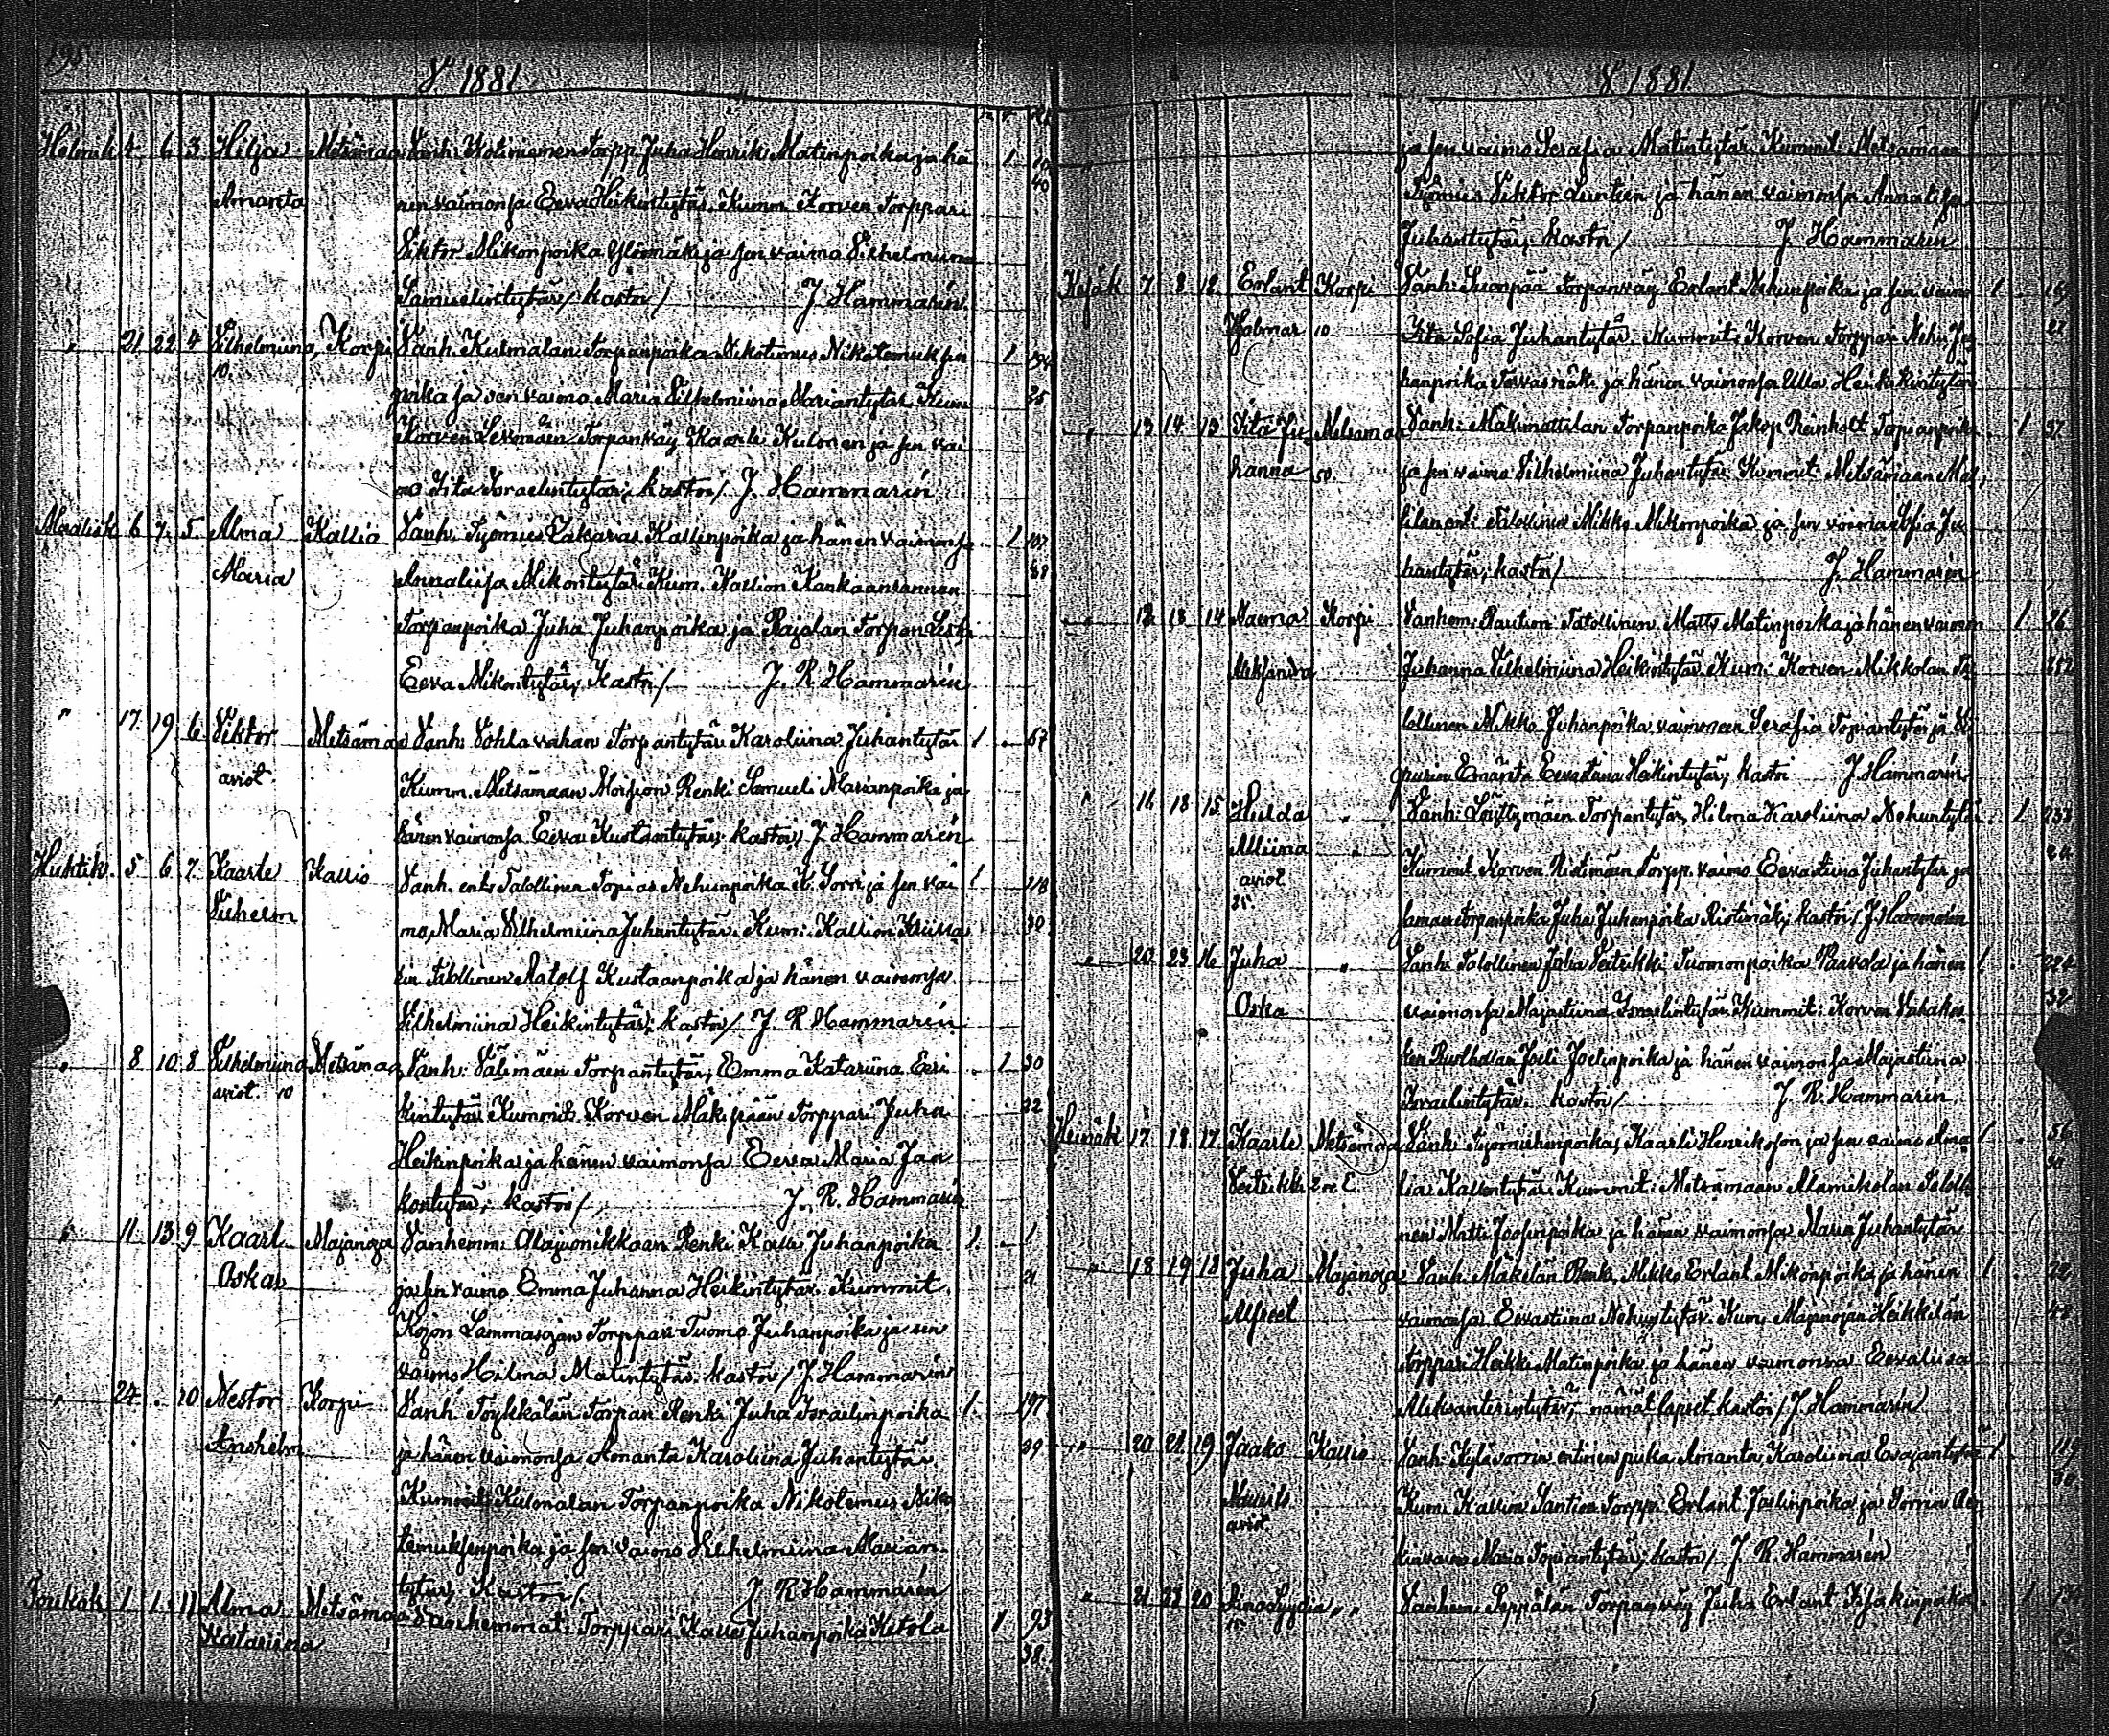 195
V. 1881
Helmik 4 6 3 Hilja Metsämaa Vanh. Torpp. Juha Henrik Matinpoika ja hä 1
Amanta nen vaimonsa Eeva Heikintytär. Kumm. Korven Torppari 40
Viktor Mikonpoika Ylismäki ja sen vaimo Vilhelmiina
Samuelintytär; kastoi / J. Hammarén.
" 21 22 4 Vilhelmiina, Korpi Vanh. Kulmalan Torpanpoika Nikotemus Nikotemuksen 1 194
10. poika ja sen vaimo Maria Vilhelmiina Mariantytär. Kum 25
Korven Torpanväy Kaarle Kulonen ja sen vai
mo Iita Israelintytär; kastoi / J. Hammarén
Maalisk 6 7 5 Alma Kallio Vanh. Työmies Sakarias Kallenpoika ja hänen vaimonsa 1 107
Maria Annaliisa Mikontytär. Kum. Kallion Kankaanrannan 58
Torpanpoika Juha Juhanpoika ja Rajalan Torpan Leski
Eeva Mikontytär; Kastoi / J. R. Hammarén
" 17 19 6 Viktor Metsämaa Vanh. Torpantytär Karoliina Juhantytär 1 67
aviot. Kumm. Metsämaan Moision Renki Samuel Marianpoika ja
hänen vaimonsa Eeva Kustaantytär; kastoi / J. Hammarén
Huhtik. 5 6 7 Kaarle Kallio Vanh. ent. Talollinen Topias Nehunpoika K. Sorri ja sen vai 1 118
Vilhelm mo, Maria Vilhelmiina Juhantytär. Kum: Kallion 30
Talollinen Aatolf Kustaanpoika ja hänen vaimonsa
Vilhelmiina Heikintytär; kastoi / J. R Hammarén
" 8 10 8 Vilhelmiina Metsämaa Vanh: Välimäen Torpantytär, Emma Katariina Eeri 1 30
aviot. 10 kintytär Kummit Korven Mäkipään Torppari Juha 22
Heikinpoika ja hänen vaimonsa Eeva Maria Jaa
kontytär; kastoi / J. R. Hammarén
" 11 13 9 Kaarl Majanoja Vanhemm: Alajuonikkaan Renki Kalle Juhanpoika 1 1
Oskar ja sen vaimo Emma Juhanna Heikintytär. Kummit. 21
Kojon Lammasojan Torppari Tuomo Juhanpoika ja sen
vaimo Hilma Matintytär. kastoi / J. Hammarén
" 24 . 10 Nestor Korpi Vanh Töykkälän Torpan Renki Juha Israelinpoika 1 197
Anshelm ja hänen vaimonsa Amanta Karoliina Juhantytär 29
Kummit: Kulmalan Torpanpoika Nikotemus Niko
temuksenpoika ja sen vaimo Vilhelmiina Marian
tytär, Kastoi / J R Hammarén
Toukok. 1 1 11 Alma Metsämaa Vanhemmat: Torppari Kalle Juhanpoika Ketola 1 93
Katariina 38.
V 1881
ja sen vaimo Serafia Matintytär. Kummit: Metsämaan
Työmies Viktor Luntten ja hänen vaimonsa Annaliisa
Juhantytär; kastoi / J. Hammarén
Kesäk 7 8 12 Erlant Korpi Vanh: Suonpää Torpanväy Erlant Nehunpoika ja sen vaimo 1 169
Hjalmar 10. Iita Sofia Juhantytär. Kummit: Korven Torppari Nehu Ju 27
hanpoika Torvasmäki ja hänen vaimonsa Ulla Heikintytär
" 13 14 13 Iita Ju- Metsämaa Vanh: Mäkimattilan Torpanpoika Jakop Reinholt Topianpoika 1 37
hanna 50. ja sen vaimo Vilhelmiina Juhantytär Kummit: Metsämaan
ent: Talollinen Mikko Mikonpoika ja sen vaimo Sofia Ju
hantytär; kastoi / J. Hammarén
" 12 13 14 Naema Korpi Vanhem: Raution Talollinen Matts Matinpoika ja hänen vaimon 1 26
Aleksandra Juhanna Vilhelmiina Heikintytär. Kum: Korven Mikkolan Ta 212
lollinen Mikko Juhanpoika vaimoneen Serafia Topiantytär ja
Emäntä Eevastiina Heikintytär; kastoi J. Hammarén
" 16 18 15 Hulda " Vanh: Löyttymäen Torpantytär, Hilma Karoliina Nehuntytär 1 233
Miina " Kummit Korven Ristimäen Torpp. vaimo Eevastiina Juhantytär ja 24
aviot saman Torpanpoika Juha Juhanpoika Ristimäki; kastoi / J. Hammarén
25.
" 20 23 16 Juha " Vanh. Talollinen Juha Vetrikki Tuomonpoika Paavola ja hänen 1 224
Oska vaimonsa Majastiina Israelintytär. Kummit: Korven 32
Joeli Joelinpoika ja hänen vaimonsa Majastiina
Israelintytär. kastoi / J. R. Hammarén
Heinäk 17 18 17 Kaarle Metsämaa Vanh: Työmiehenpoika, Kaarle Henriksson ja sen vaimo Ama 1 56
Vetrikki lia Kallentytär. Kummit: Metsämaan Alamikolan Talolli 30
nen Matti Joosenpoika ja hänen vaimonsa Maria Juhantytär
" 18 19 18 Juha Majanoja Vanh. Mäkelän Renki, Mikko Erlant Mikonpoika ja hänen 1 22
Alfreet vaimonsa Eevastiina Nehuntytär. Kum: Majanojan Heikkilän 40
torppari Heikki Matinpoika ja hänen vaimonsa Eevaliisa
Aleksanterintytär, nämät lapset kastoi / J. Hammarén
" 20 21 19 Jaako Kallio Vanh. Kyläsorrin entinen piika Amanta Karoliina Esajantytär 1 119
Maurits Kum: Kallion Santion Torpp. Erlant Joelinpoika ja Sorrin Ren 30
aviot. kinvaimo Maria Topiantytär; kastoi / J. R. Hammarén
" 21 23 20 Aina Lyydia " " Vanhem: Seppälän Torpanväy Juha Erlant Iisakinpoika 1